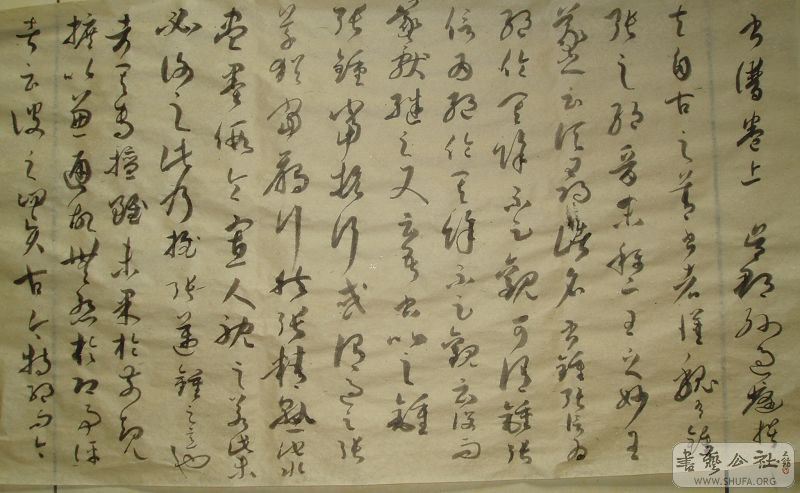 書譜卷上 吳郡孫過庭撰
夫自古之善書者漢魏有鍾
張之絕晉末稱二王之妙王
羲之云頃尋諸名書鍾張信為
絕倫其餘不足觀可謂鍾張
信為絕倫其餘不足觀云沒而
羲獻繼之又云吾書比之鍾
張鍾當抗行或謂過之張
草猶當雁行然張精熟池水
盡墨假令寡人耽之若此未
必謝之此乃推張邁鍾之意也
考其專擅雖未果於前規
摭以兼通故無慚於即事評
者云彼之四賢古今特絕而今
書藝公社
WWW.SHUFA.ORG